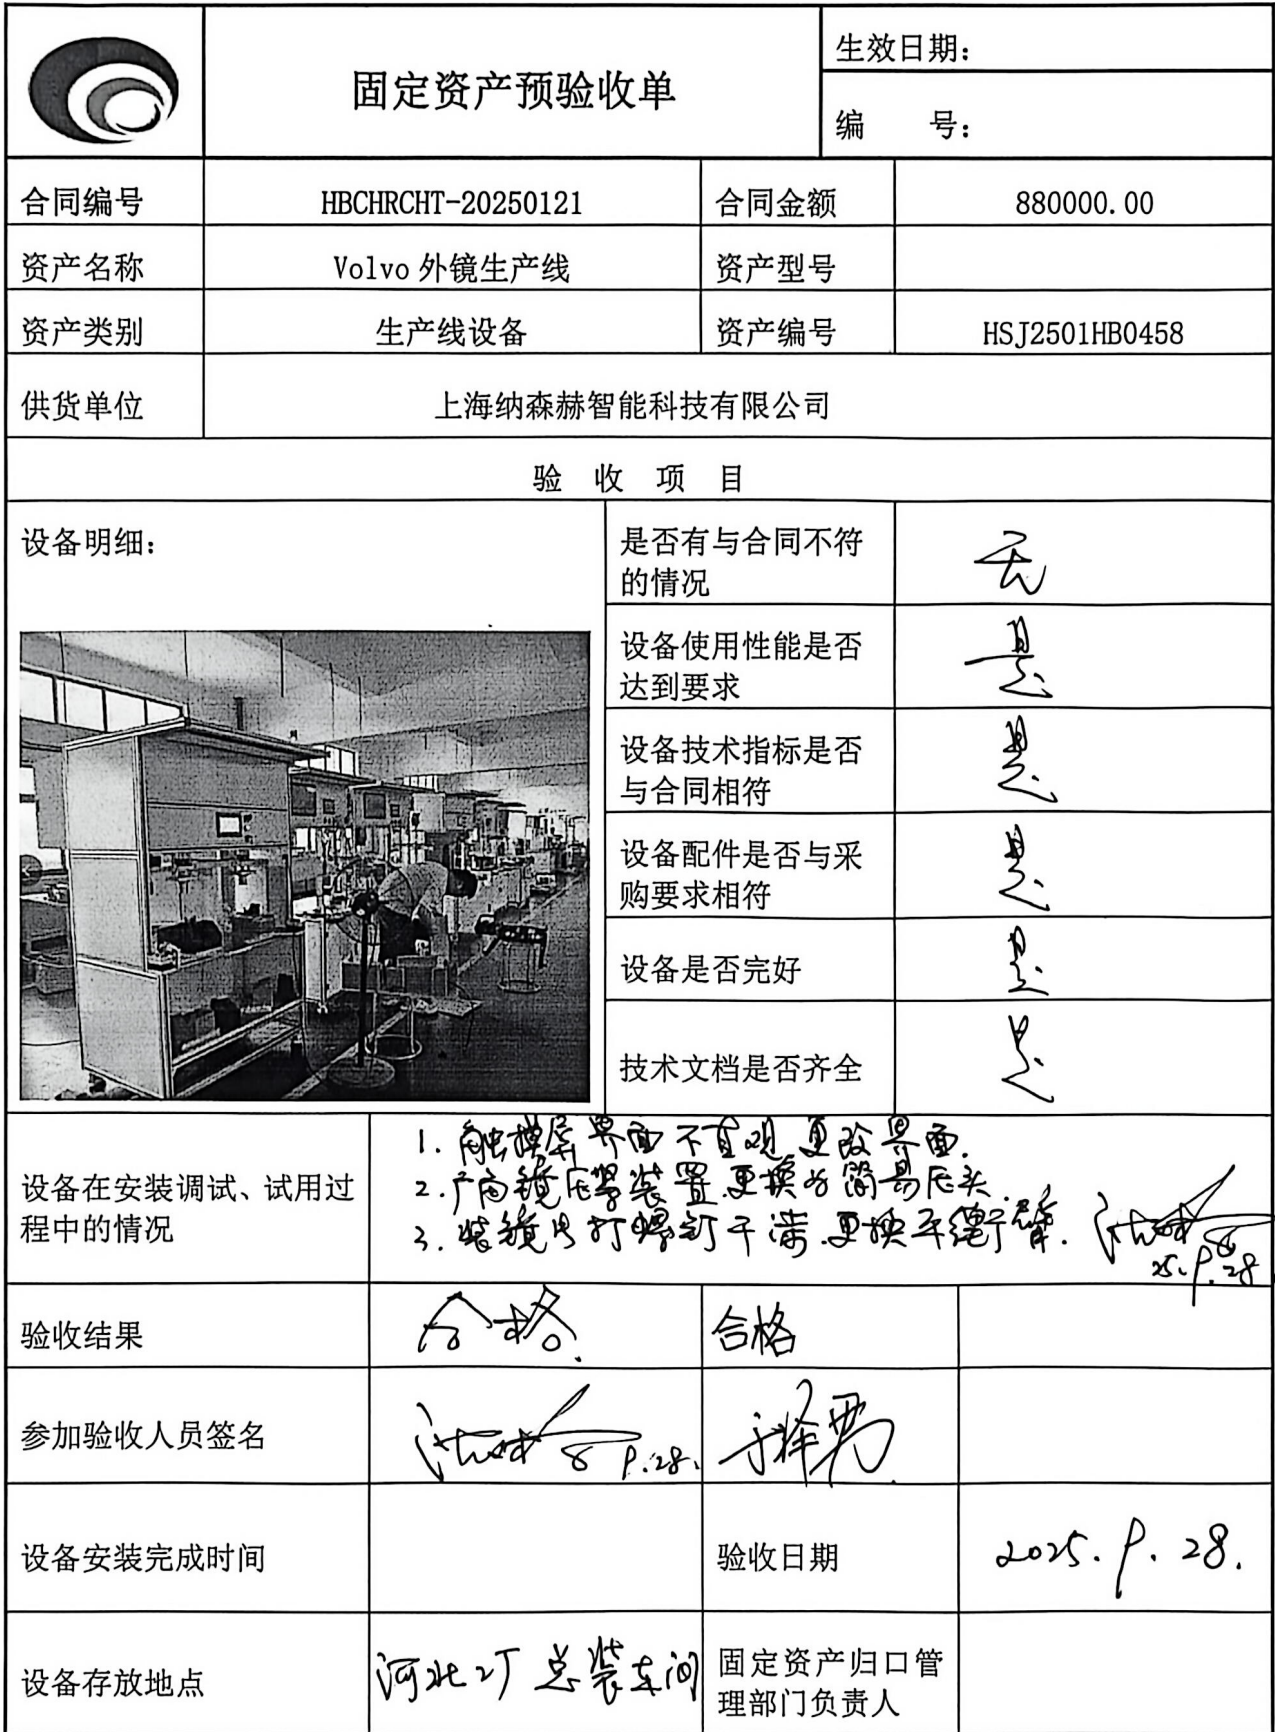 固定资产预验收单
生效日期：
编 号：
合同编号 HBCHRCHT-20250121 合同金额 880000.00
资产名称 Volvo外镜生产线 资产型号
资产类别 生产线设备 资产编号 HSJ2501HB0458
供货单位 上海纳森赫智能科技有限公司
验 收 项 目
设备明细：
是否有与合同不符
的情况
无
设备使用性能是否
达到要求
是
设备技术指标是否
与合同相符
是.
设备配件是否与采
购要求相符
是.
设备是否完好
是.
技术文档是否齐全
是.
设备在安装调试、试用过
程中的情况
1. 触摸屏界面不直观,更改界面.
2. 广角镜压紧装置更换为简易压头.
3. 装镜片打螺钉干涉.更换平衡臂.
25.9.28
验收结果 合格. 合格
参加验收人员签名 9.28.
设备安装完成时间 验收日期 2025.9.28.
设备存放地点 河北2厂总装车间 固定资产归口管
理部门负责人